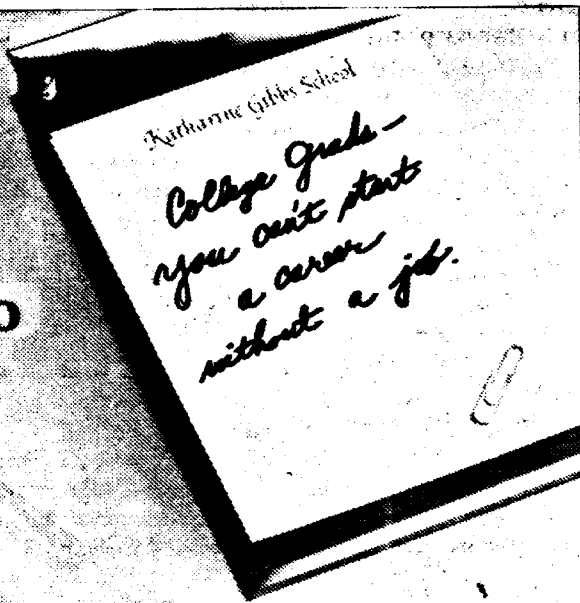 Katharine Gibbs School
College Grads—
you can't start
a career
without a job.